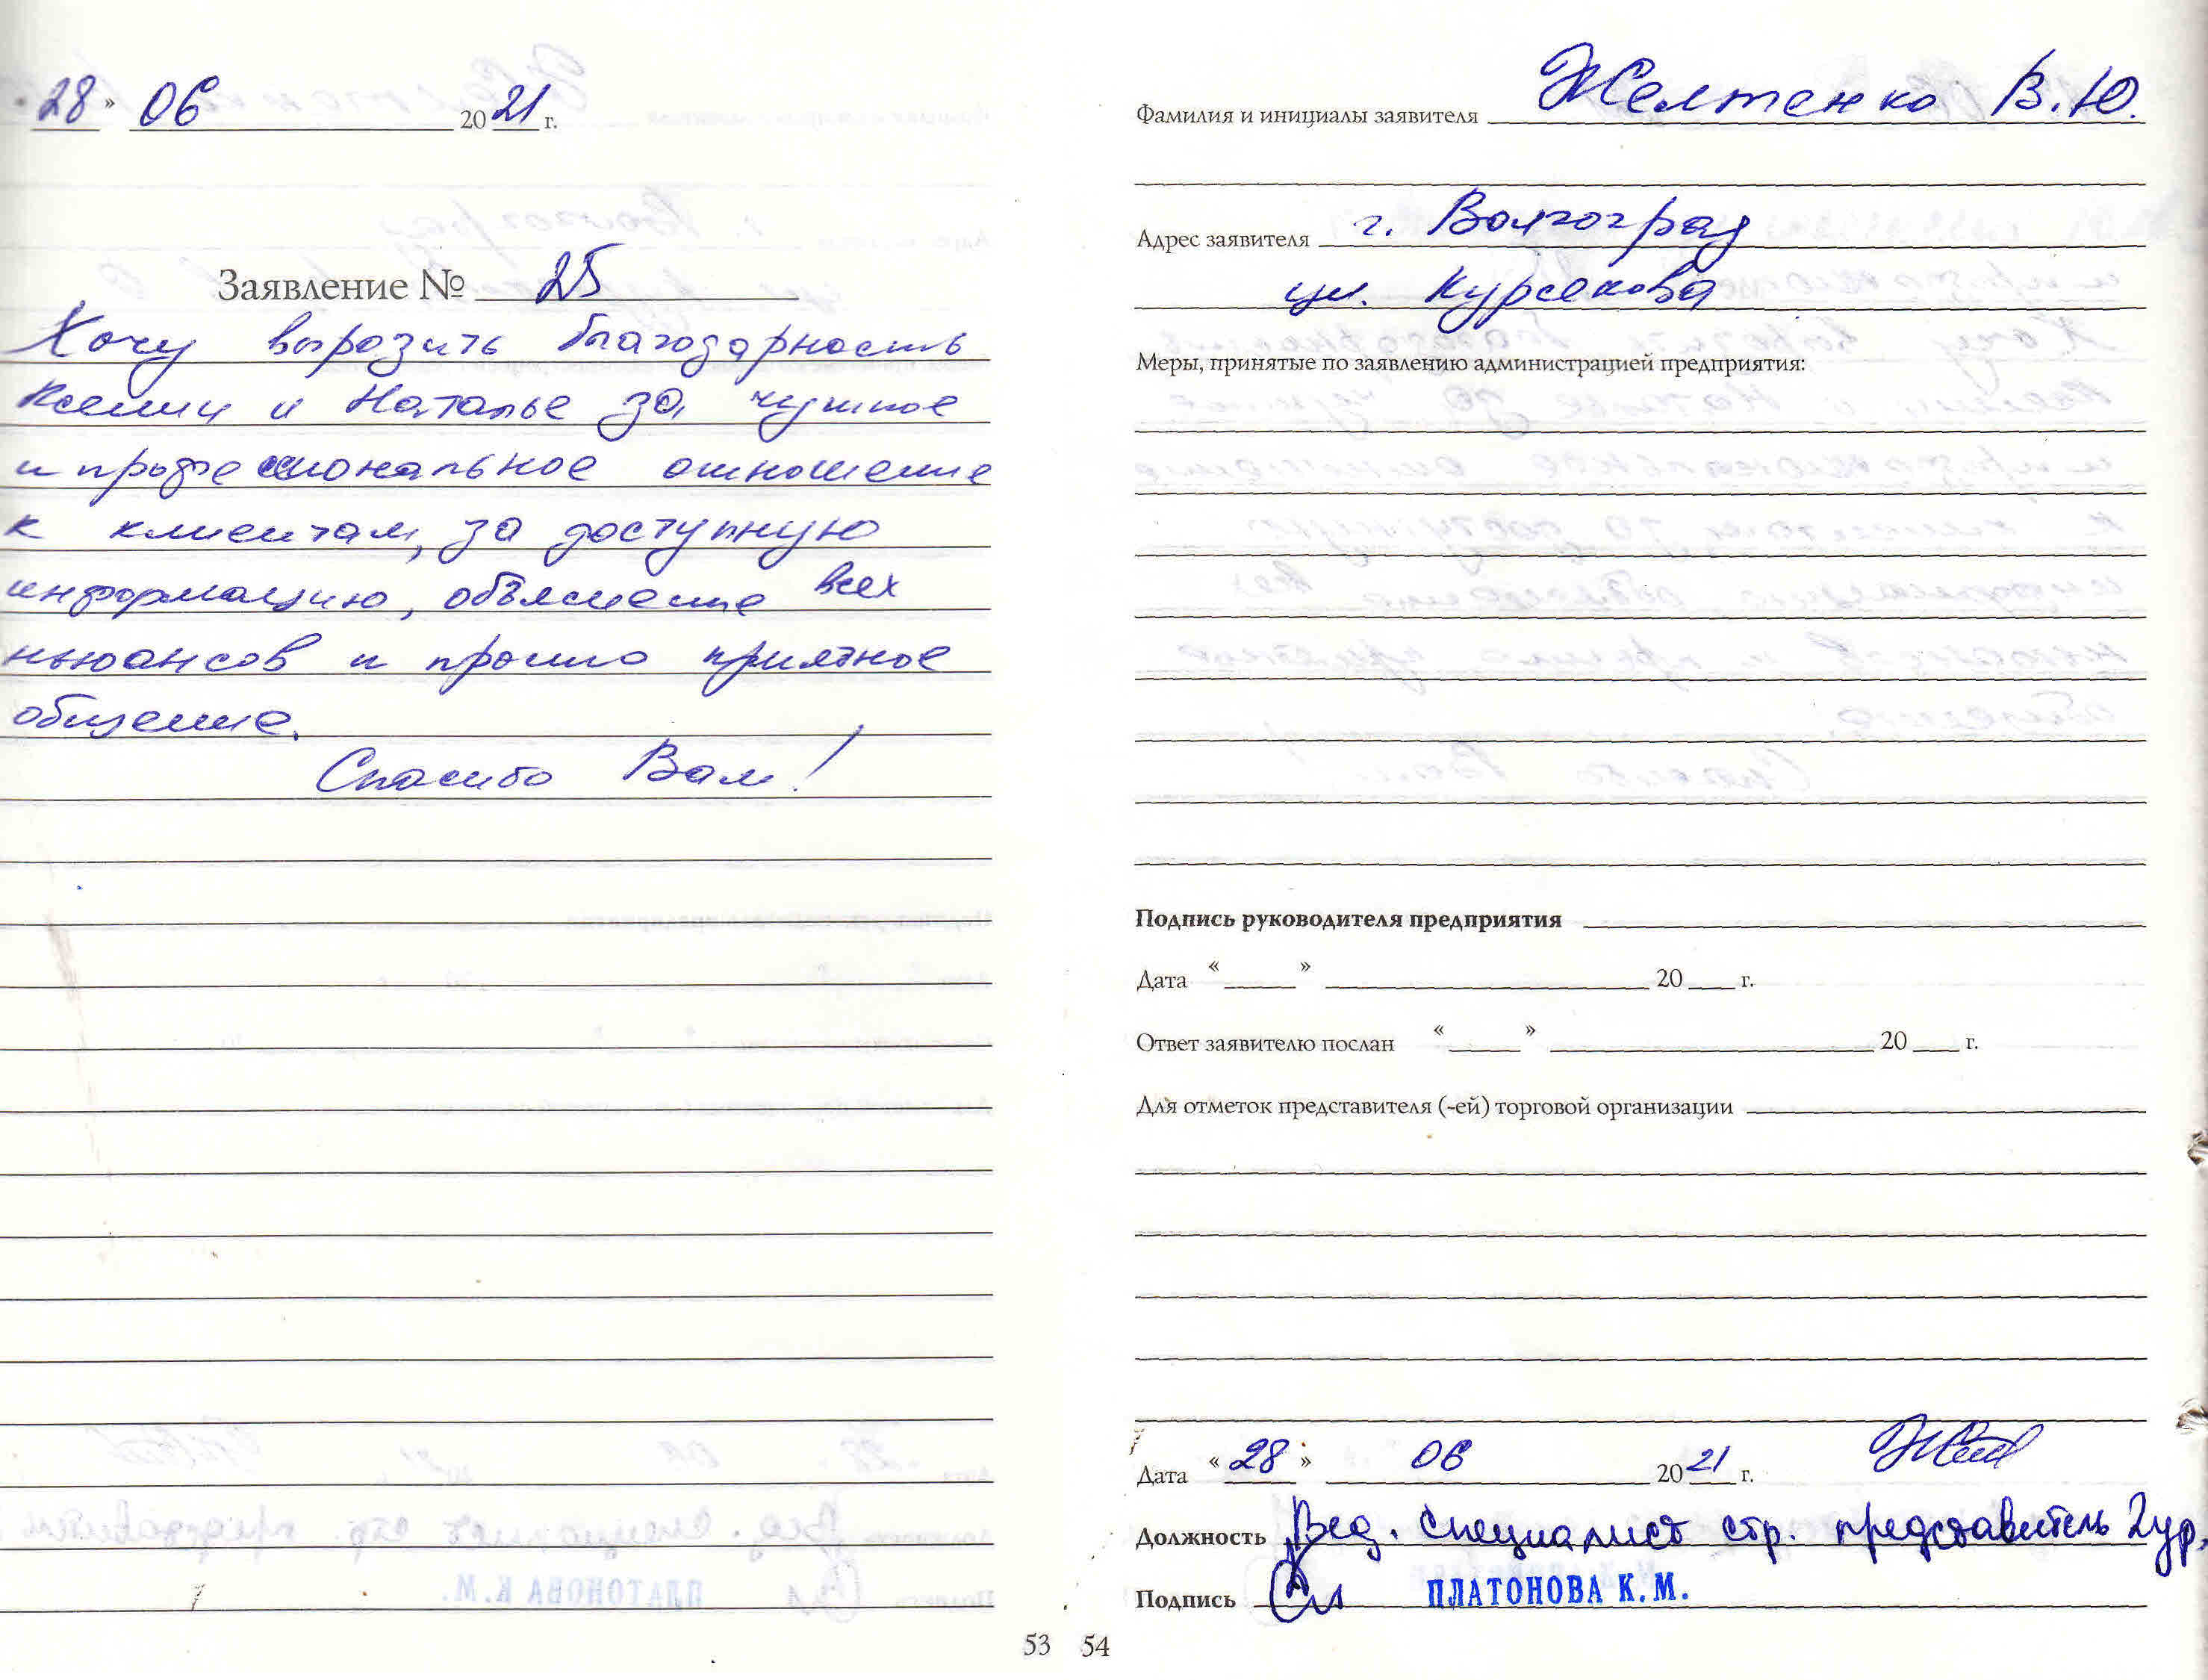 28 » 06 2021 г.
Заявление № 25
Хочу выразить благодарность
Ксении и Наталье за чуткое
и профессиональное отношение
к клиентам, за доступную
информацию, объяснение всех
ньюансов и просто приятное
общение.
Спасибо Вам!
53
Фамилия и инициалы заявителя Желтенко В.Ю.
Адрес заявителя г. Волгоград
ул. Курсекова
Меры, принятые по заявлению администрацией предприятия:
Подпись руководителя предприятия
Дата « » 20 г.
Ответ заявителю послан « » 20 г.
Для отметок представителя (-ей) торговой организации
Дата « 28 » 06 2021 г.
Должность Вед. специалист стр. представитель 2 ур.
Подпись ПЛАТОНОВА К.М.
54